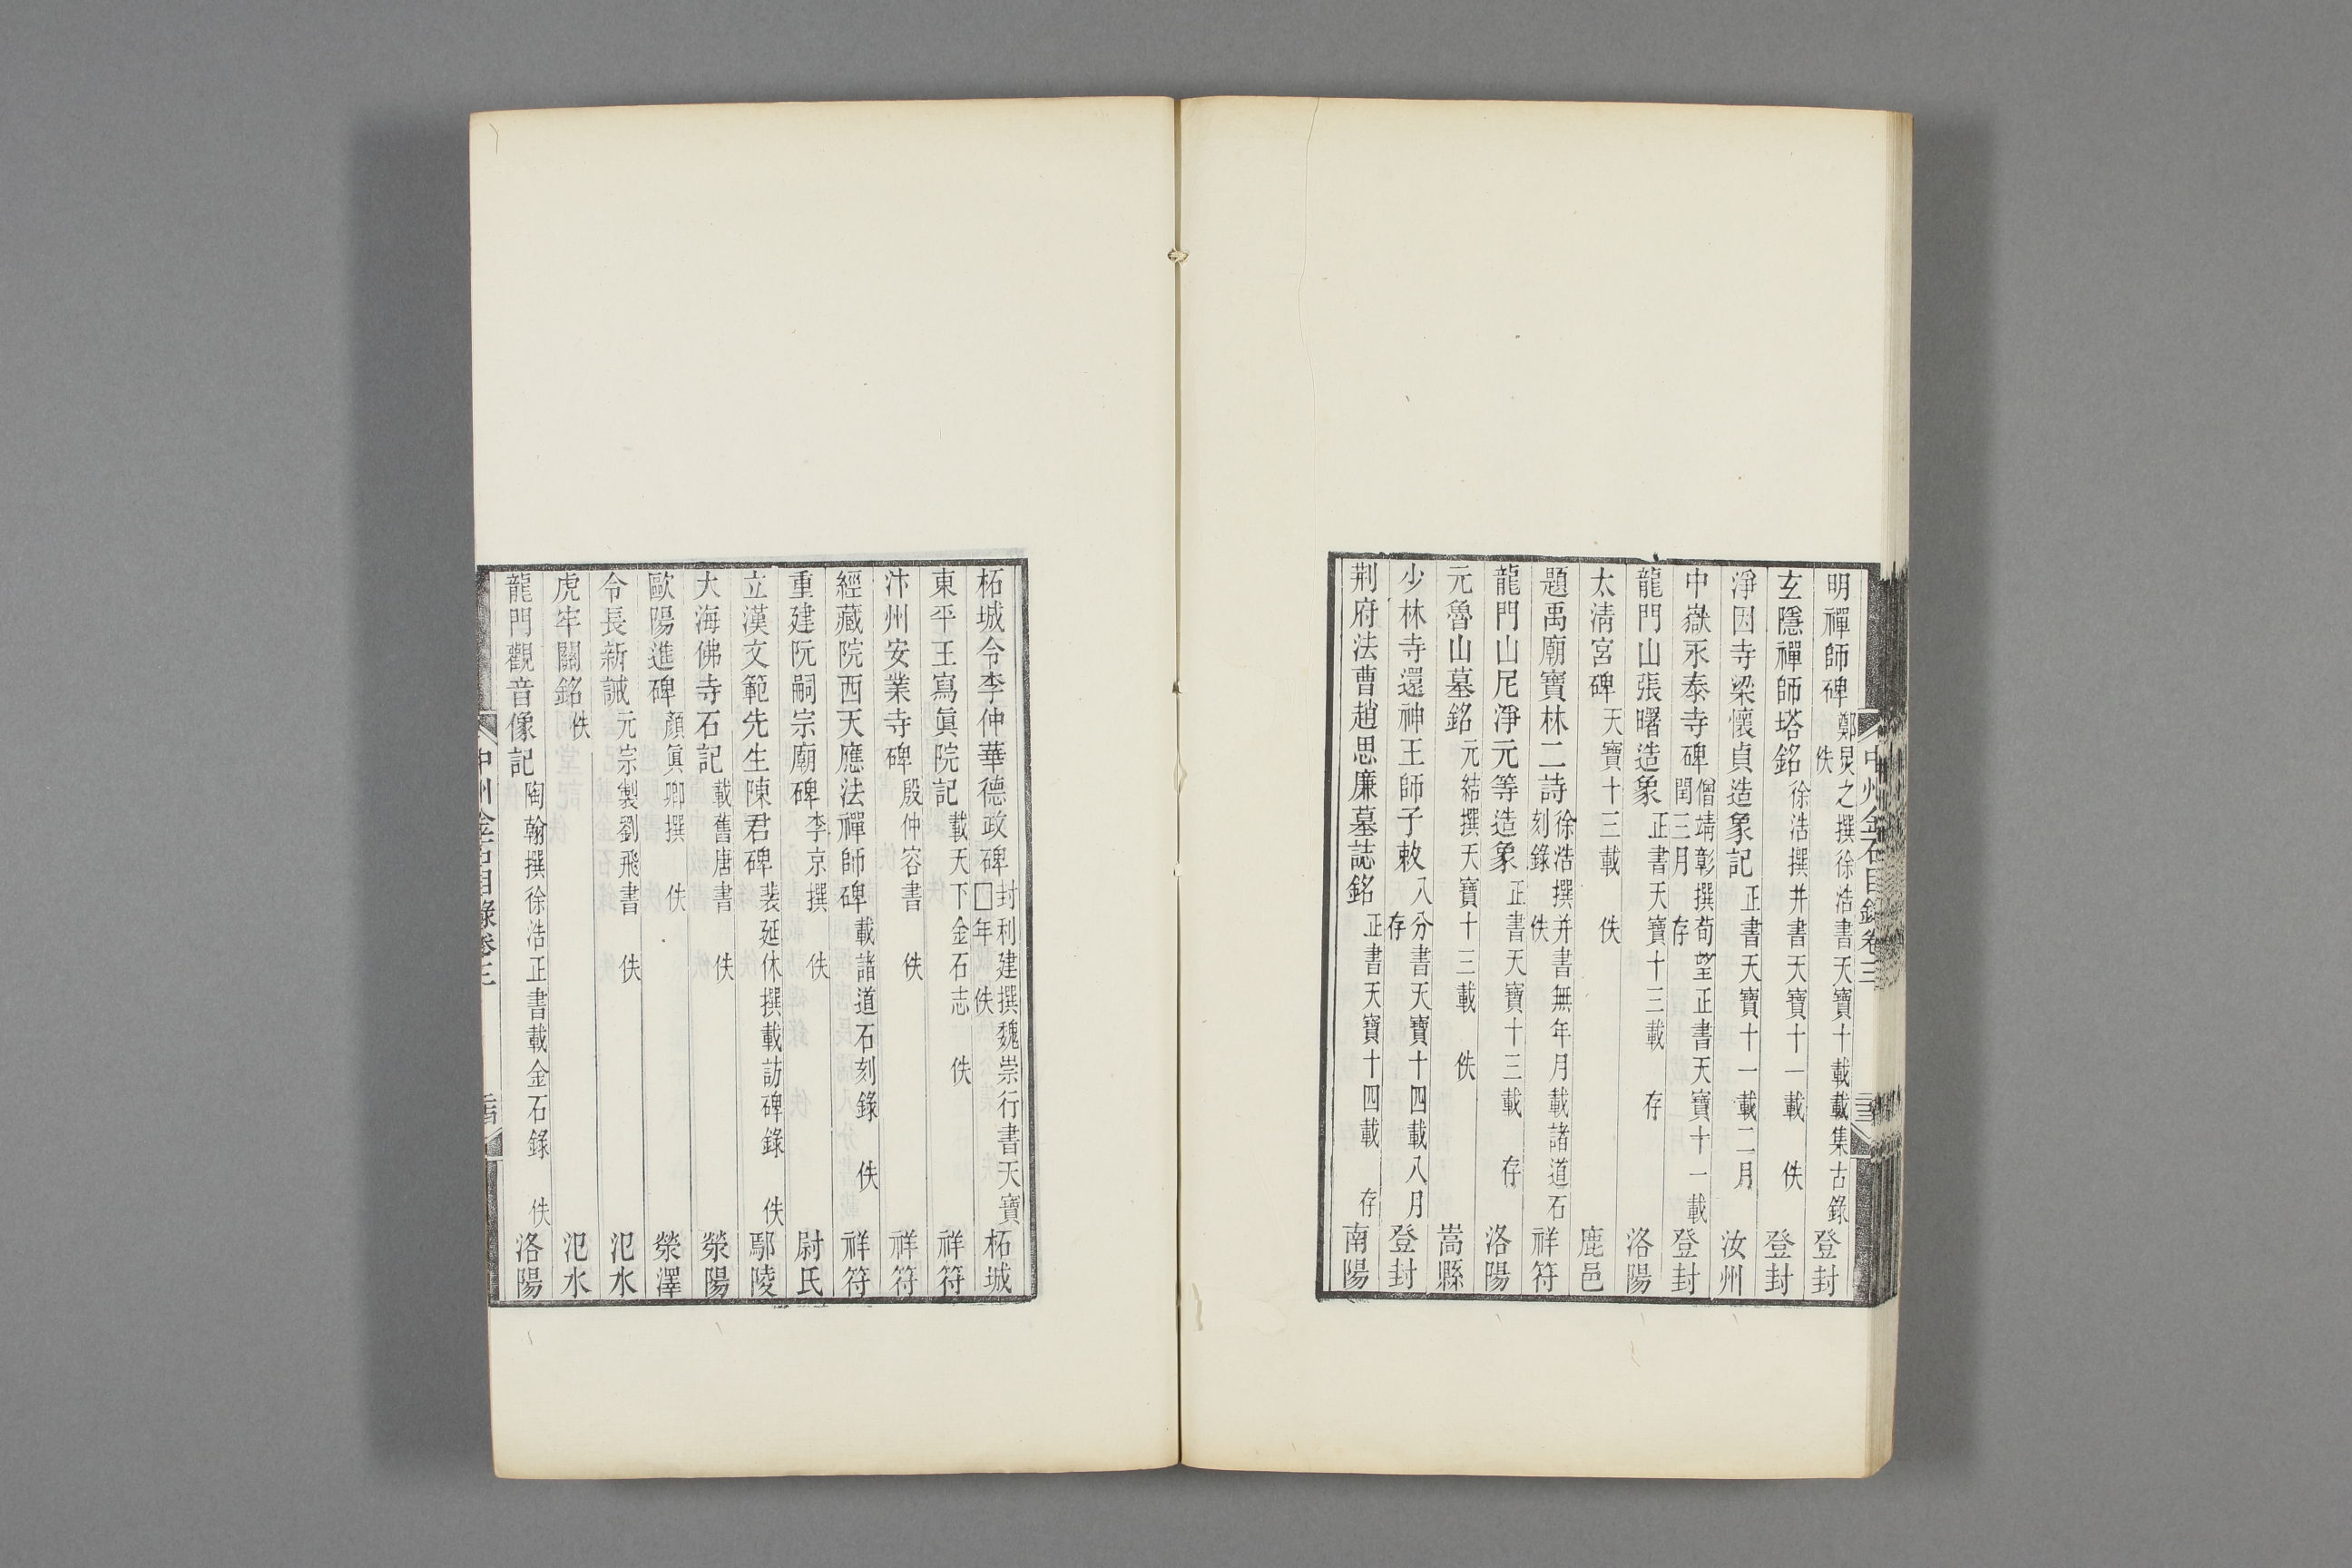 明禪師碑 鄭炅之撰徐浩書天寶十載載集古錄 佚 登封
玄隱禪師塔銘 徐浩撰并書天寶十一載 佚 登封
淨因寺梁懷貞造象記 正書天寶十一載二月 汝州
中嶽永泰寺碑 僧靖彰撰荀望正書天寶十一載閏三月 存 登封
龍門山張曙造象 正書天寶十三載 存 洛陽
太淸宮碑 天寶十三載 佚 鹿邑
題禹廟寶林二詩 徐浩撰并書無年月載諸道石刻錄 佚 祥符
龍門山尼淨元等造象 正書天寶十三載 存 洛陽
元魯山墓銘 元結撰天寶十三載 佚 嵩縣
少林寺還神王師子敕 八分書天寶十四載八月 存 登封
荆府法曹趙思廉墓誌銘 正書天寶十四載 存 南陽
中州金石目錄卷三
柘城令李仲華德政碑 封利建撰魏崇行書天寶□年 佚 柘城
東平王寫眞院記 載天下金石志 佚 祥符
汴州安業寺碑 殷仲容書 佚 祥符
經藏院西天應法禪師碑 載諸道石刻錄 佚 祥符
重建阮嗣宗廟碑 李京撰 佚 尉氏
立漢文範先生陳君碑 裴延休撰載訪碑錄 佚 鄢陵
大海佛寺石記 載舊唐書 佚 滎陽
歐陽進碑 顏眞卿撰 佚 滎澤
令長新誡 元宗製劉飛書 佚 汜水
虎牢關銘 佚 汜水
龍門觀音像記 陶翰撰徐浩正書載金石錄 佚 洛陽
中州金石目錄卷三